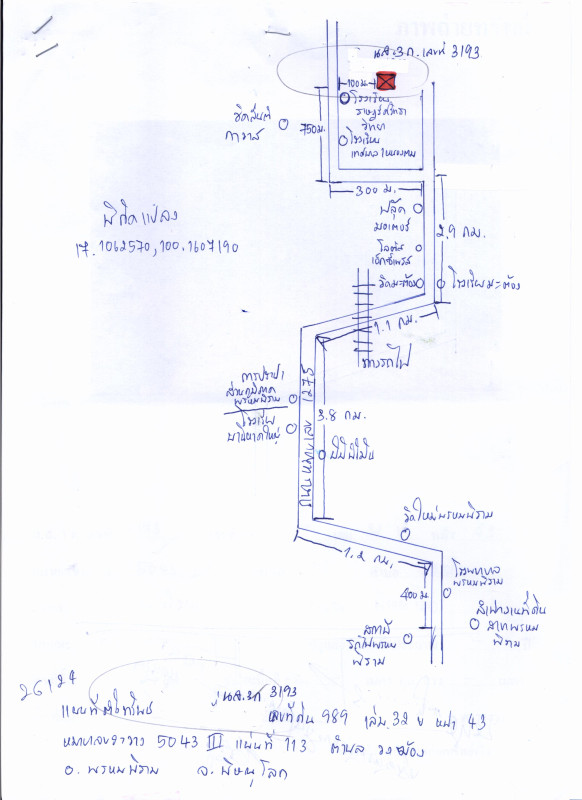 น.ส.3ก. เลขที่ 3193
100 ม.
โรงเรียน
ราษฎร์ศรัทธา
วิทยา
วัดสันติ
กาวาส
750 ม.
โรงเรียน
เทศบาล
300 ม.
พิกัดแปลง
17.1062570,100.1607190
ฟลุ๊ค
มอเตอร์
2.9 กม.
โลตัส
เอ็กซ์เพรส
วัดมะต้อง
โรงเรียนมะต้อง
1.1 กม.
ทางรถไฟ
การประปา
ส่วนภูมิภาค
พรหมพิราม
ถนนหมายเลข 1275
3.8 กม.
โรงเรียน
บ้านหาดใหญ่
วัดใหม่พรหมพิราม
1.2 กม.
โรงพยาบาล
พรหมพิราม
400 ม.
สำนักงานที่ดิน
สาขาพรหม
พิราม
สถานี
รถไฟพรหม
พิราม
26124
แผนที่ตั้งทรัพย์ น.ส.3ก 3193
เลขที่ดิน 989 เล่ม 32 ข หน้า 43
หมายเลขระวาง 5043 III แผ่นที่ 113 ตำบล วงฆ้อง
อ. พรหมพิราม จ. พิษณุโลก